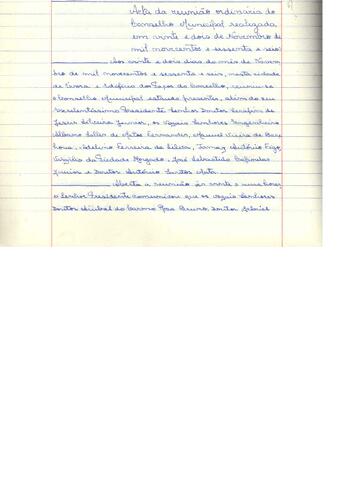 Acta da reunião ordinária do
Conselho Municipal realizada
em vinte e dois de Novembro de
mil novecentos e sessenta e seis:
Aos vinte e dois dias do mês de Novem-
bro de mil novecentos e sessenta e seis, nesta cidade
de Évora e Edifício dos Paços do Concelho, reuniu-se
o Conselho Municipal estando presentes, além do seu
Excelentíssimo Presidente Senhor Doutor Serafim de
Jesus Silveira Junior, os Vogais Senhores Engenheiro
Albano de Matos Fernandes, Manuel Vieira de
Adelino Ferreira da Silva, António
Virgílio da Piedade Morgado, José Sebastião
Junior e Doutor António Santos
Aberta a reunião às vinte e uma horas
o Senhor Presidente comunicou que os Vogais Senhores
Doutor do Carmo Rosa Bruno, Doutor Gabriel